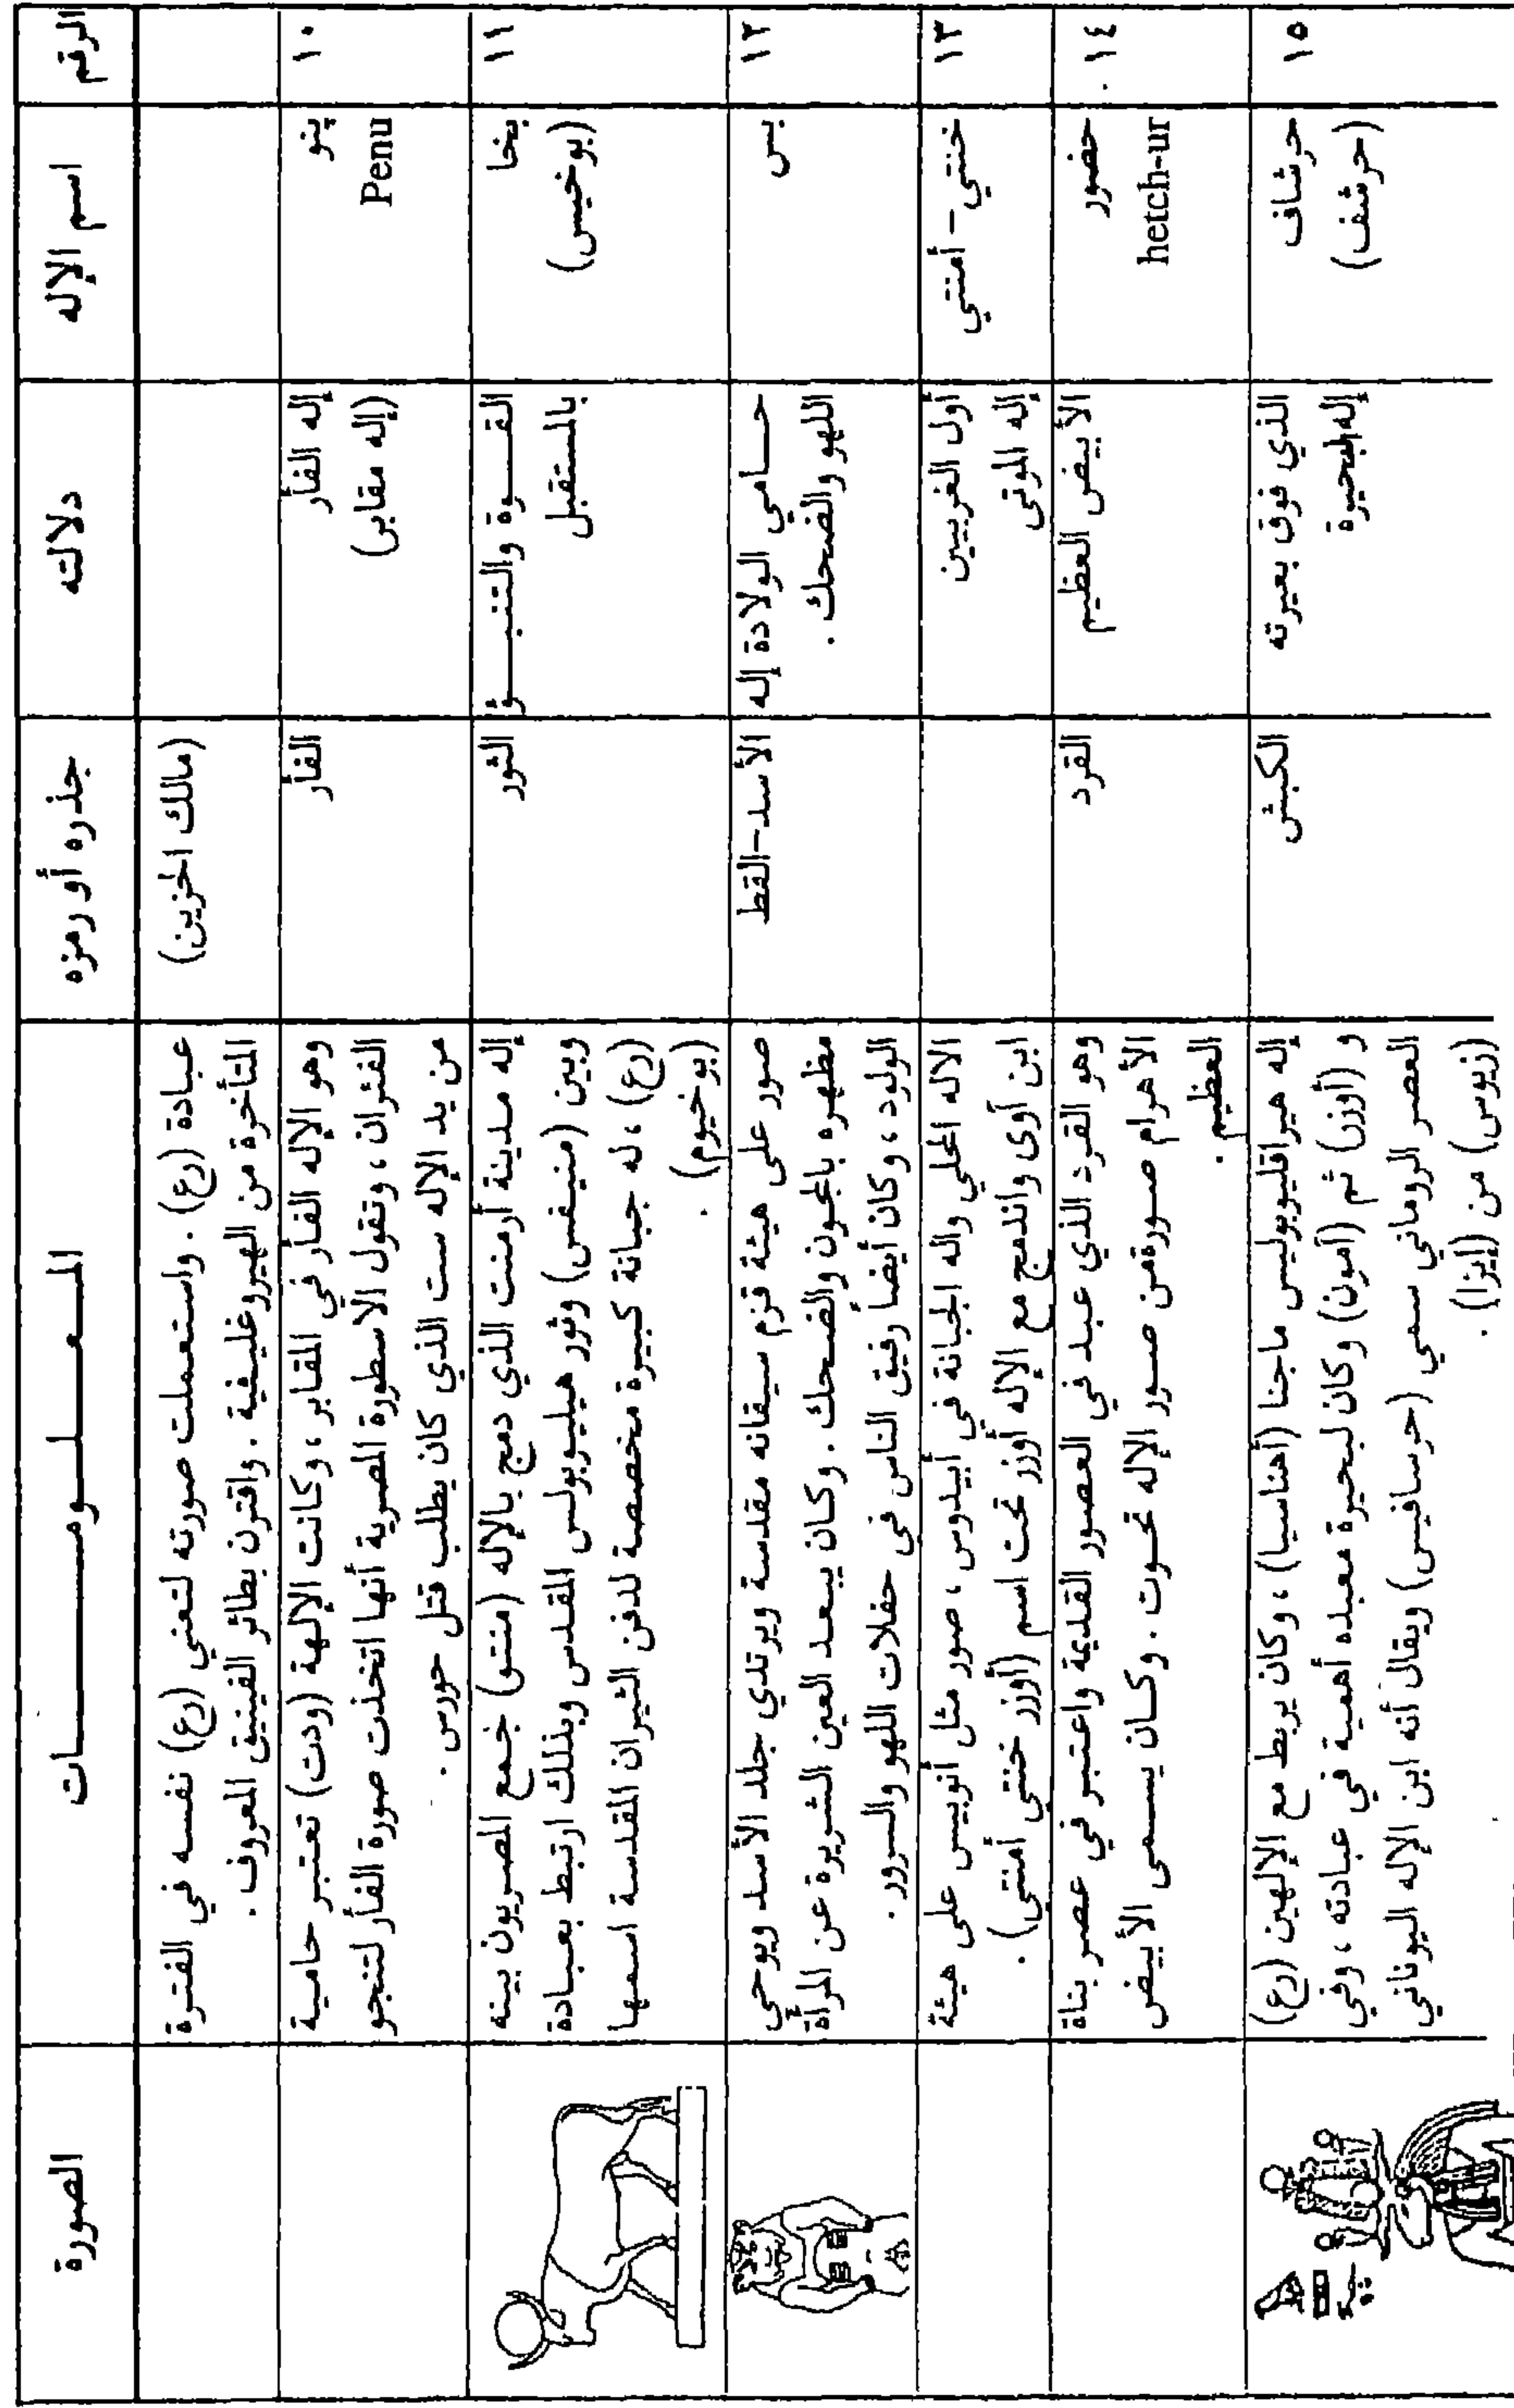 الرقم	اسم الإله	دلالته	جذره أو رمزه	المعلومات	الصورة
(مالك الحزين)
عبادة (رع). واستعملت صورته لتعني (رع) نفسه في الفترة
المتأخرة من الهيروغليفية. واقترن بطائر الفينيق المعروف.
١٠
پنو
Penu
إله الفأر
(إله مقابر)
الفأر
وهو الإله الفأر في المقابر، وكانت الإلهة (ودت) تعتبر حامية
الفئران، وتقول الأسطورة المصرية أنها اتخذت صورة الفأر لتنجو
من يد الإله ست الذي كان يطلب قتل حورس.
١١
بخا
(بوخيس)
القوة والتنبؤ
بالمستقبل
الثور
إله مدينة أرمنت الذي دمج بالإله (منتو) جمع المصريون بينه
وبين (منيفس) وثور هيليوبولس المقدس وبذلك ارتبط بعبادة
(رع)، له جبانة كبيرة مخصصة لدفن الثيران المقدسة اسمها
(بوخيوم).
١٢
بس
حامي الولادة إله
اللهو والضحك.
الأسد-القط
صور على هيئة قزم سيقانه مقدسة ويرتدي جلد الأسد ويوحي
مظهره بالمجون والضحك. وكان يبعد العين الشريرة عن المرأة
الولود، وكان أيضاً رفيق الناس في حفلات اللهو والسرور.
١٣
خنتي-أمنتي
أول الغربيين
إله الموتى
الاله المحلي واله الجبانة في أبيدوس، صور مثل أنوبيس على هيئة
ابن آوى واندمج مع الإله أوزر تحت اسم (أوزر خنتي أمنتي).
١٤
حضور
hetch-ur
الأبيض العظيم
القرد
وهو القرد الذي عبد في العصور القديمة واعتبر في عصر بناة
الأهرام صورةمن صور الإله تحوت. وكان يسمى الأبيض
العظيم.
١٥
حرشاف
(حرشف)
الذي فوق بعيرته
إله البحيرة
الكبش
إله هيراقليوبوليس ماجنا (أهناسيا)، وكان يربط مع الإلهين (رع)
و (أوزر) ثم (آمون) وكان لبحيرة معبده أهمية في عبادته، وفي
العصر الروماني سمي (حرسافيس) ويقال أنه ابن الإله اليوناني
(زيوس) من (إيزا).